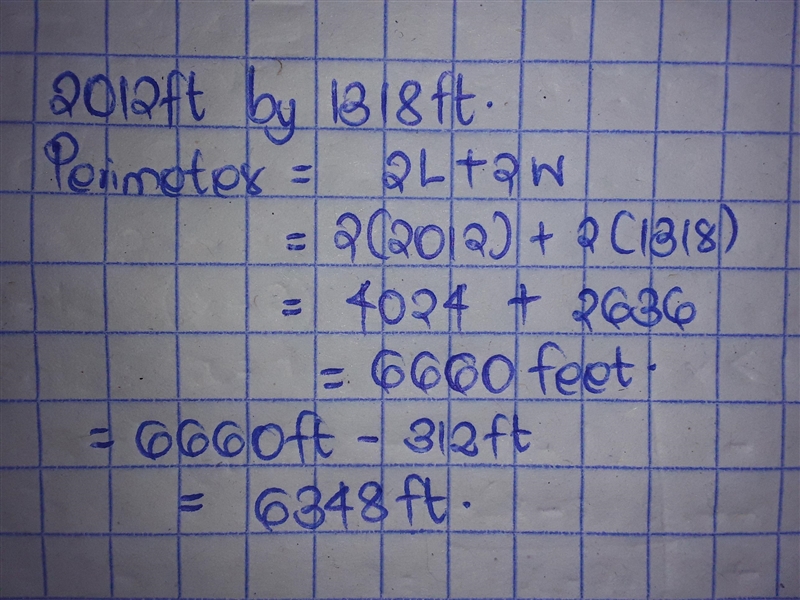 2012ft by 1318ft.
Perimeter = 2L + 2W
= 2(2012) + 2(1318)
= 4024 + 2636
= 6660 feet.
= 6660ft - 312ft
= 6348ft.